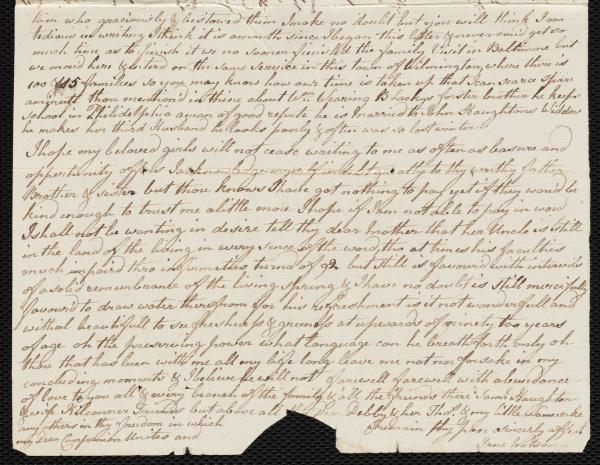 him who graciously bestowed them I make no doubt but you will think I am
tedious in writing I think it is a month since I began this letter & never could get so
much time as to finish it we no sooner finish'd the family Visit in Baltimore but
we mov'd here & enterd on the same Service in this town of Wilmington where there is
100 & 15 families so you may know how our time is taken up that I can scarce spare
a minuit thou mention'd in thine about Wm Wearing B Lackys foster brother he keeps
School in Philidelphia a man of good repute he is married to John Haughtons Widdow
he makes her third Husband he looks poorly & often was so last winter
I hope my beloved girls will not cease writing to me as often as leasure and
oppertunity offers I acknowledge myself in debt greatly to thy worthy father
Brother & sister but thou knows I have got nothing to pay yet if they would be
kind enough to trust me a little more I hope if I am not able to pay in word
I shall not be wanting in desire tell thy dear Mother that her Uncle is still
in the land of the living in every sence of the word, tho at times his faculties
much impair'd thro infirmities, turn'd of 92 but still is favoured with intervils
of a solid remembrance of the living Spring & I have no doubt is still mercifully
favour'd to draw water therefrom for his refreshment is it not wonderfull and
withal beautifull to see freshness & greeness at upwards of ninety two years
of age oh the preserving power what language can he breath forth only oh
thou that has been with me all my life long leave me not nor forsake in my
concluding moments & I believe he will not farewell farewell with abundance
of love to you all & every branch of the family & all the friends there Saml Haughton
& wife Kilconner Friends but above all dear Debby & her Thos & my little Namesake
any others in thy freedom in which I remain thy Jean sincerly affect
my dear Companion Unites and
Jane Watson